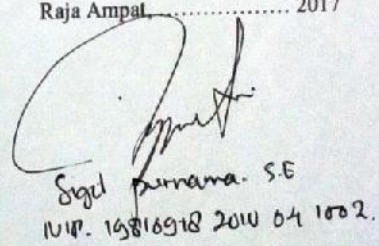 Raja Ampat.................. 2017
Sigit purnama. S.E
NIP. 19816918 2010 04 1002.